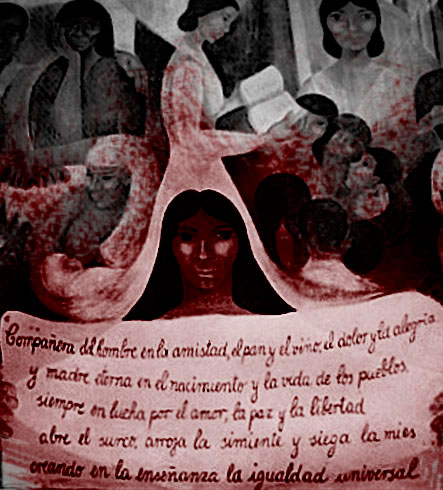 Compañera del hombre en la amistad, el pan y el vino, el dolor y la alegría
y madre eterna en el nacimiento y la vida de los pueblos,
siempre en lucha por el amor, la paz y la libertad
abre el surco, arroja la simiente y siega la mies...
creando en la enseñanza la igualdad universal